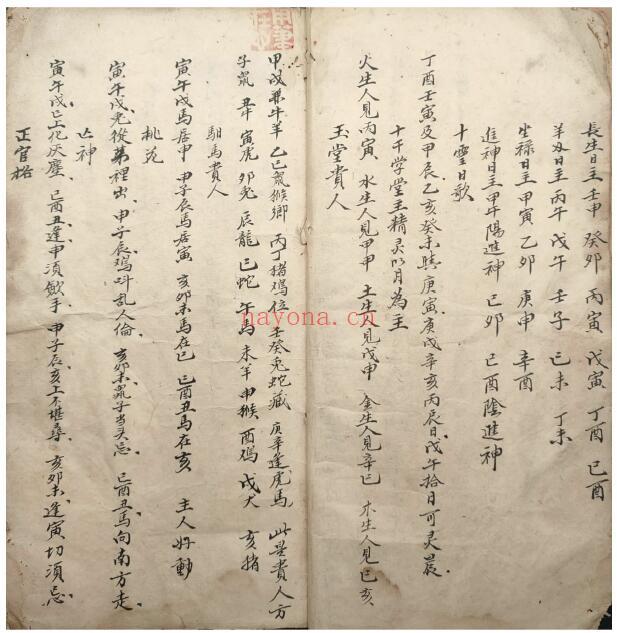 長生日主 壬申 癸卯 丙寅 戊寅 丁酉 己酉
羊刃日主 丙午 戊午 壬子 己未 丁未
坐禄日主 甲寅 乙卯 庚申 辛酉
進神日主 甲午陽進神 己卯 己酉陰進神
十靈日歌
丁酉壬寅及甲辰、乙亥癸未與庚寅、庚戌辛亥丙辰日、戊午拾日可灵晨、
十干学堂主精灵以月為主
火生人見丙寅 水生人見甲申 土生人見戊申 金生人見辛巳 木生人見己亥
玉堂貴人
甲戊兼牛羊 乙己鼠猴鄉 丙丁猪鸡位 壬癸兎蛇藏 庚辛逢虎馬 此是貴人方
子鼠 丑牛 寅虎 卯兎 辰龍 巳蛇 午馬 未羊 申猴 酉鸡 戌犬 亥猪
馹馬貴人
寅午戌馬居申 甲子辰馬居寅 亥卯未馬在巳 巳酉丑馬在亥 主人好動
桃花
寅午戌兎從茅裡出、申子辰鸡叫乱人倫、亥卯未鼠子当头忌、巳酉丑馬向南方走、
亡神
寅午戌巳上化灰塵、巳酉丑逢申須歛手、申子辰亥上不堪尋、亥卯未逢寅切須忌、
正官格
nayona.cn